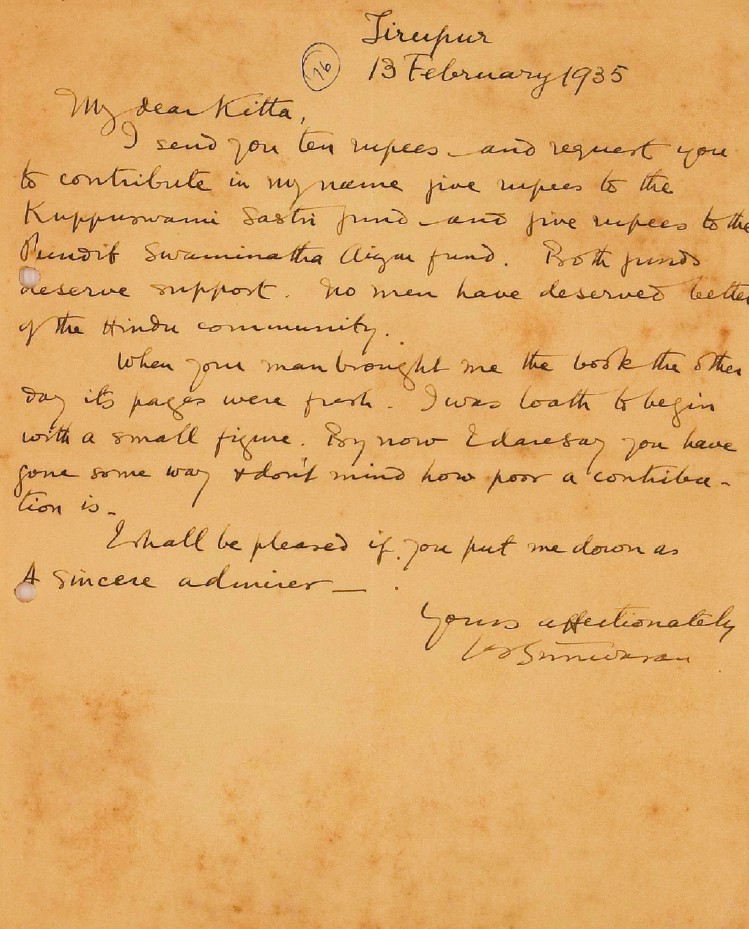 Tirupur
16
13 February 1935
My dear Kitta,
I send you ten rupees and request you
to contribute in my name five rupees to the
Kuppuswami Sastri fund and five rupees to the
Pundit Swaminatha Aiyar fund. Both funds
deserve support. No men have deserved better
of the Hindu community.
When your man brought me the book the other
day its pages were fresh. I was loath to begin
with a small figure. By now I daresay you have
gone some way & don't mind how poor a contribu-
tion is.
I shall be pleased if you put me down as
A sincere admirer —
Yours affectionately
Srinivasan